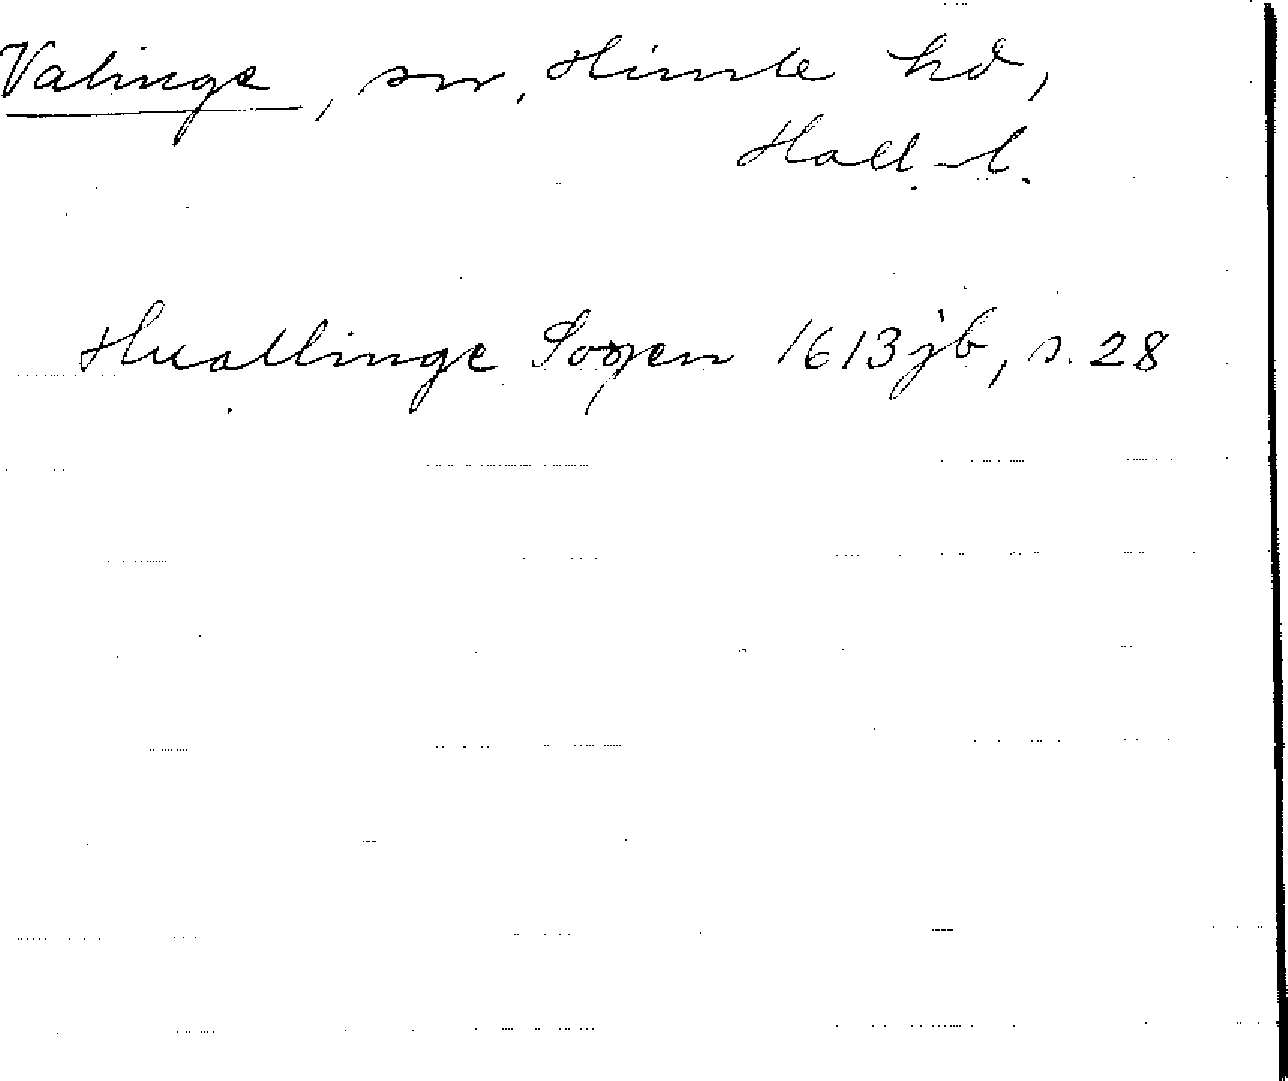 Valinge, sn, Himle hd,
Hall. l.
Huallinge Sogen 1613 jb, s. 28